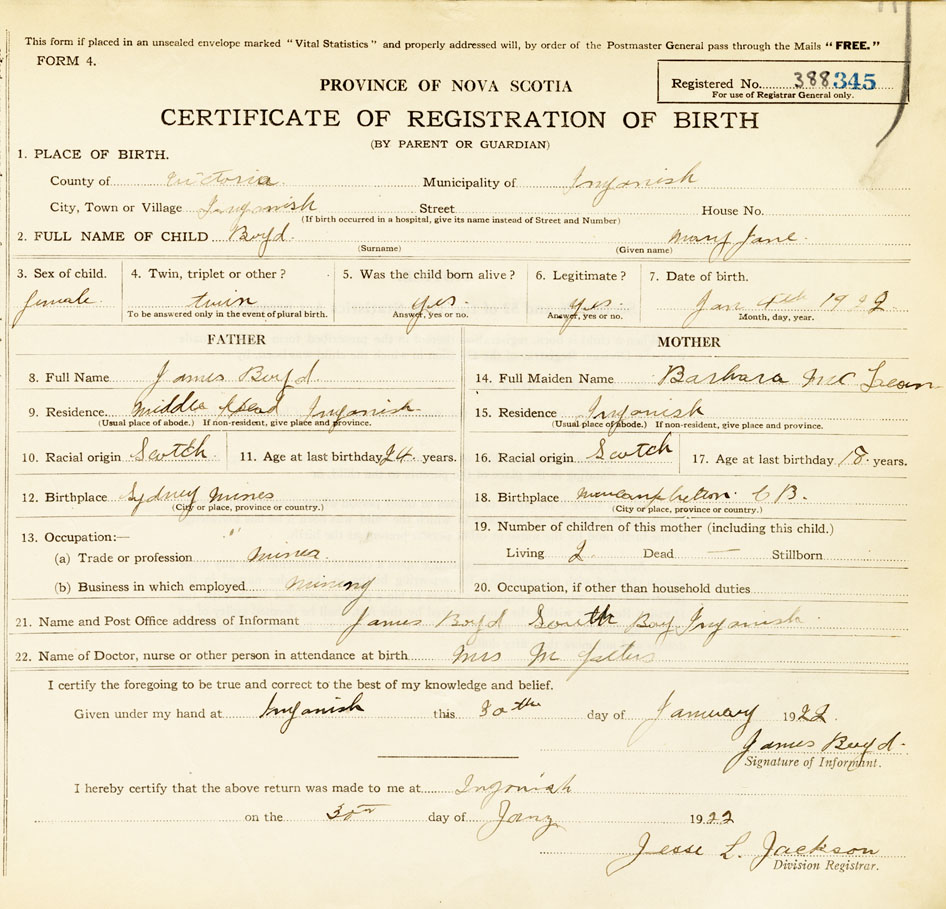 This form if placed in an unsealed envelope marked "Vital Statistics" and properly addressed will, by order of the Postmaster General pass through the Mails "FREE."
FORM 4.
PROVINCE OF NOVA SCOTIA
Registered No. 388345
For use of Registrar General only.
CERTIFICATE OF REGISTRATION OF BIRTH
(BY PARENT OR GUARDIAN)
1. PLACE OF BIRTH.
County of Victoria Municipality of Ingonish
City, Town or Village Ingonish Street House No.
(If birth occurred in a hospital, give its name instead of Street and Number)
2. FULL NAME OF CHILD Boyd. Mary Jane.
(Surname) (Given name)
3. Sex of child. 4. Twin, triplet or other? 5. Was the child born alive? 6. Legitimate? 7. Date of birth.
female. twin yes. yes. Jan 4th 1922
To be answered only in the event of plural birth. Answer, yes or no. Answer, yes or no. Month, day, year.
FATHER MOTHER
8. Full Name James Boyd. 14. Full Maiden Name Barbara Mc Lean
9. Residence Middle Head Ingonish 15. Residence Ingonish
(Usual place of abode.) If non-resident, give place and province. (Usual place of abode.) If non-resident, give place and province.
10. Racial origin Scotch. 11. Age at last birthday 24 years. 16. Racial origin Scotch 17. Age at last birthday 18 years.
12. Birthplace Sydney Mines 18. Birthplace C B.
(City or place, province or country.) (City or place, province or country.)
13. Occupation:— 19. Number of children of this mother (including this child.)
(a) Trade or profession Miner Living 2 Dead — Stillborn
(b) Business in which employed Mining 20. Occupation, if other than household duties
21. Name and Post Office address of Informant James Boyd South Bay Ingonish
22. Name of Doctor, nurse or other person in attendance at birth Mrs M
I certify the foregoing to be true and correct to the best of my knowledge and belief.
Given under my hand at Ingonish this 30th day of January 1922.
James Boyd.
Signature of Informant.
I hereby certify that the above return was made to me at Ingonish
on the 30th day of Jany 1922
Jesse L. Jackson
Division Registrar.